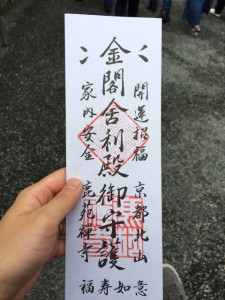 開運招福 京都北山
金閣舎利殿御守護
家内安全 鹿苑禅寺
如意
寿
福